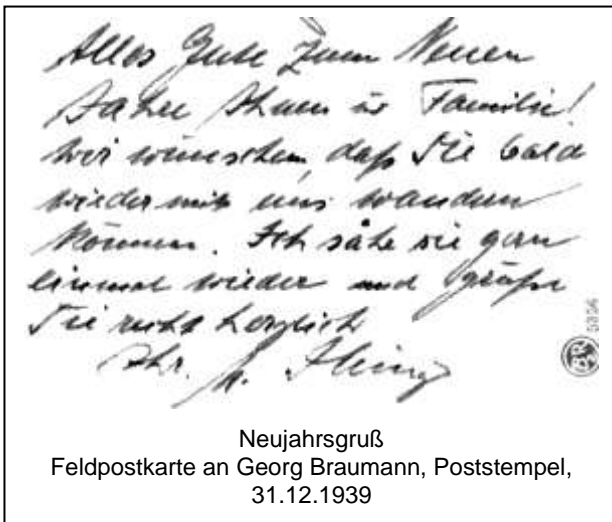 Alles Gute zum Neuen
Jahre Ihnen u Familie!
Wir wünschen, daß Sie bald
wieder mit uns wandern
können. Ich sähe sie gern
einmal wieder und grüße
Sie recht herzlich
Ihr
5356
Neujahrsgruß
Feldpostkarte an Georg Braumann, Poststempel,
31.12.1939